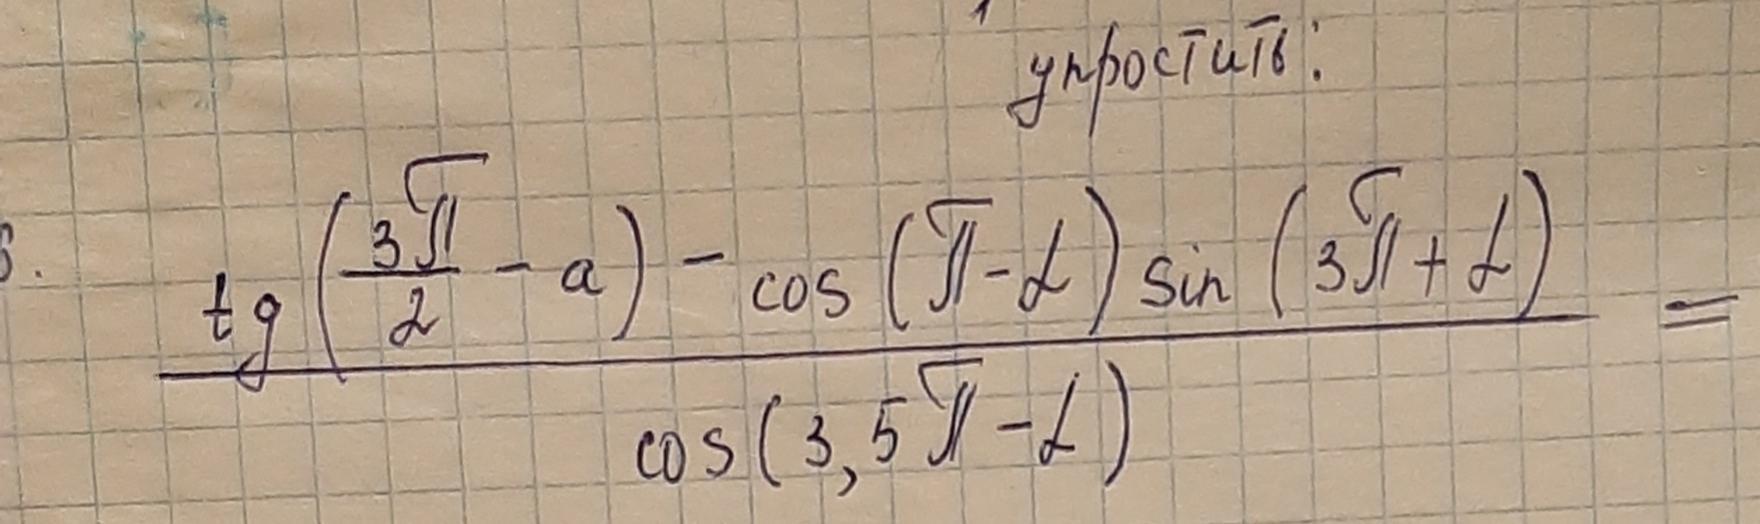 упростить:
tg(3π/2 - a) - cos(π-α) sin(3π+α) =
cos(3,5π-α)